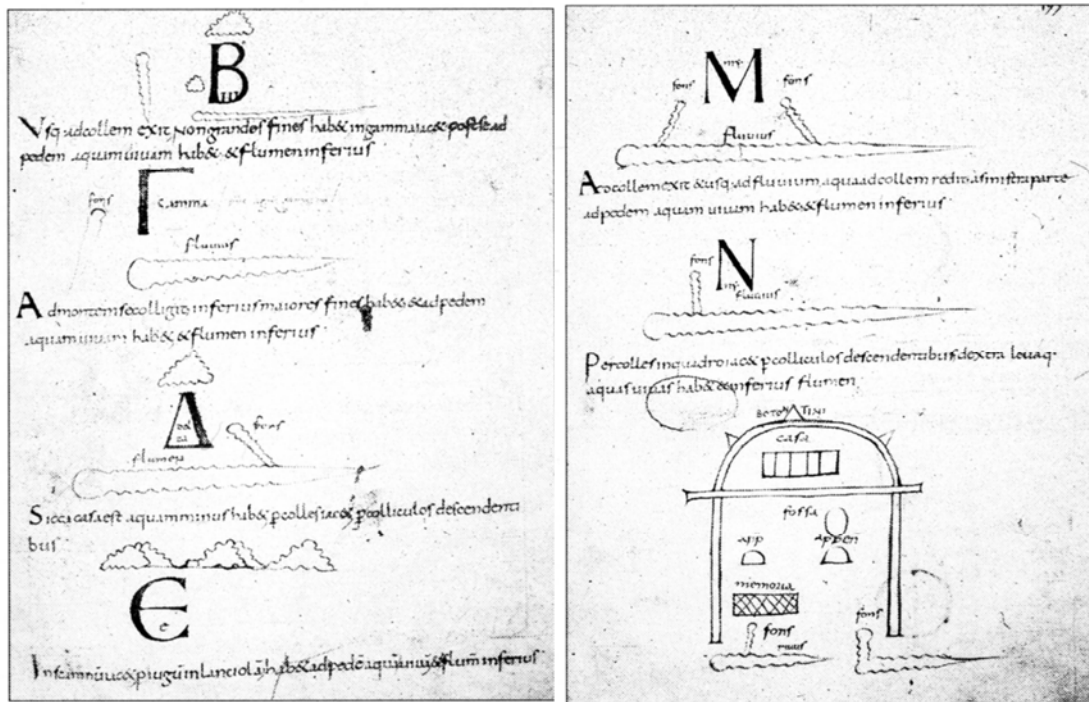 B
Usq; ad collem exit Non grandes fines hab& in gamma iac& post se ad
pedem aquam uiuam hab& & flumen inferius
fons
Γ
Gamma
fluuius
Ad montem se colligit inferius maiores fines hab& & ad pedem
aquam uiuam hab& & flumen inferius
fons
flumen
Sicca casa est aquam minus hab& p colles iac& p colliculos descendenti
bus
E
e
hab& ad pedē inferius
177
M
my
fons
fons
fluuius
A collem exit & usq; ad fluuium aqua ad collem redit a sinistra parte
ad pedem aquam uiuam hab& & flumen inferius
fons
N
fluuius
Per colles in quadro iac& p colliculos descendentibus dextra leuaq.
aquas uiuas hab& & inferius flumen
casa
fossa
app
appen
memoria
fons
fons
riuus